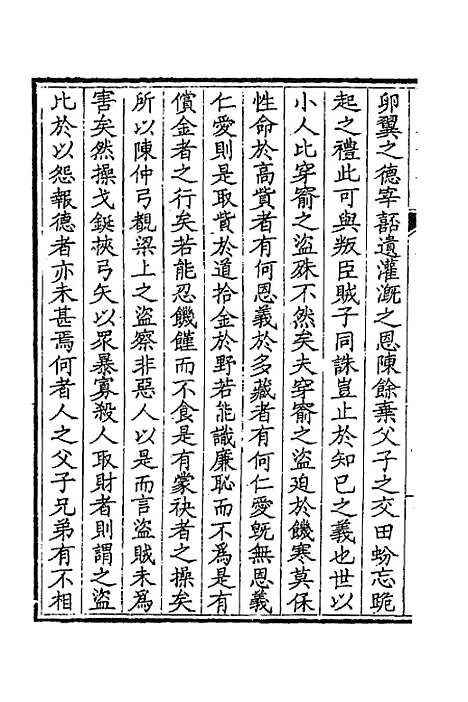 卵翼之德宰嚭遺灌溉之恩陳餘棄父子之交田蚡忘跪
起之禮此可與叛臣賊子同誅豈止於知己之義也世以
小人比穿窬之盜殊不然矣夫穿窬之盜迫於饑寒莫保
性命於高貲者有何恩義於多藏者有何仁愛既無恩義
仁愛則是取貲於道拾金於野若能識廉恥而不為是有
償金者之行矣若能忍饑饉而不食是有蒙袂者之操矣
所以陳仲弓覩梁上之盜察非惡人以是而言盜賊未為
害矣然操戈鋋挾弓矢以眾暴寡殺人取財者則謂之盜
比於以怨報德者亦未甚焉何者人之父子兄弟有不相